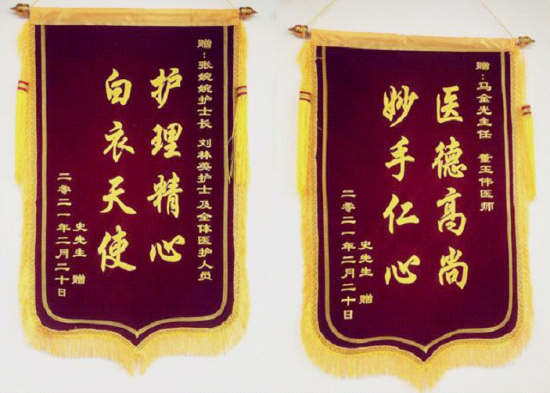 赠:张婉婉护士长 刘林英护士及全体医护人员
护理精心
白衣天使
史先生 赠
二零二一年二月二十日
赠:马金光主任 董玉伟医师
医德高尚
妙手仁心
史先生 赠
二零二一年二月二十日